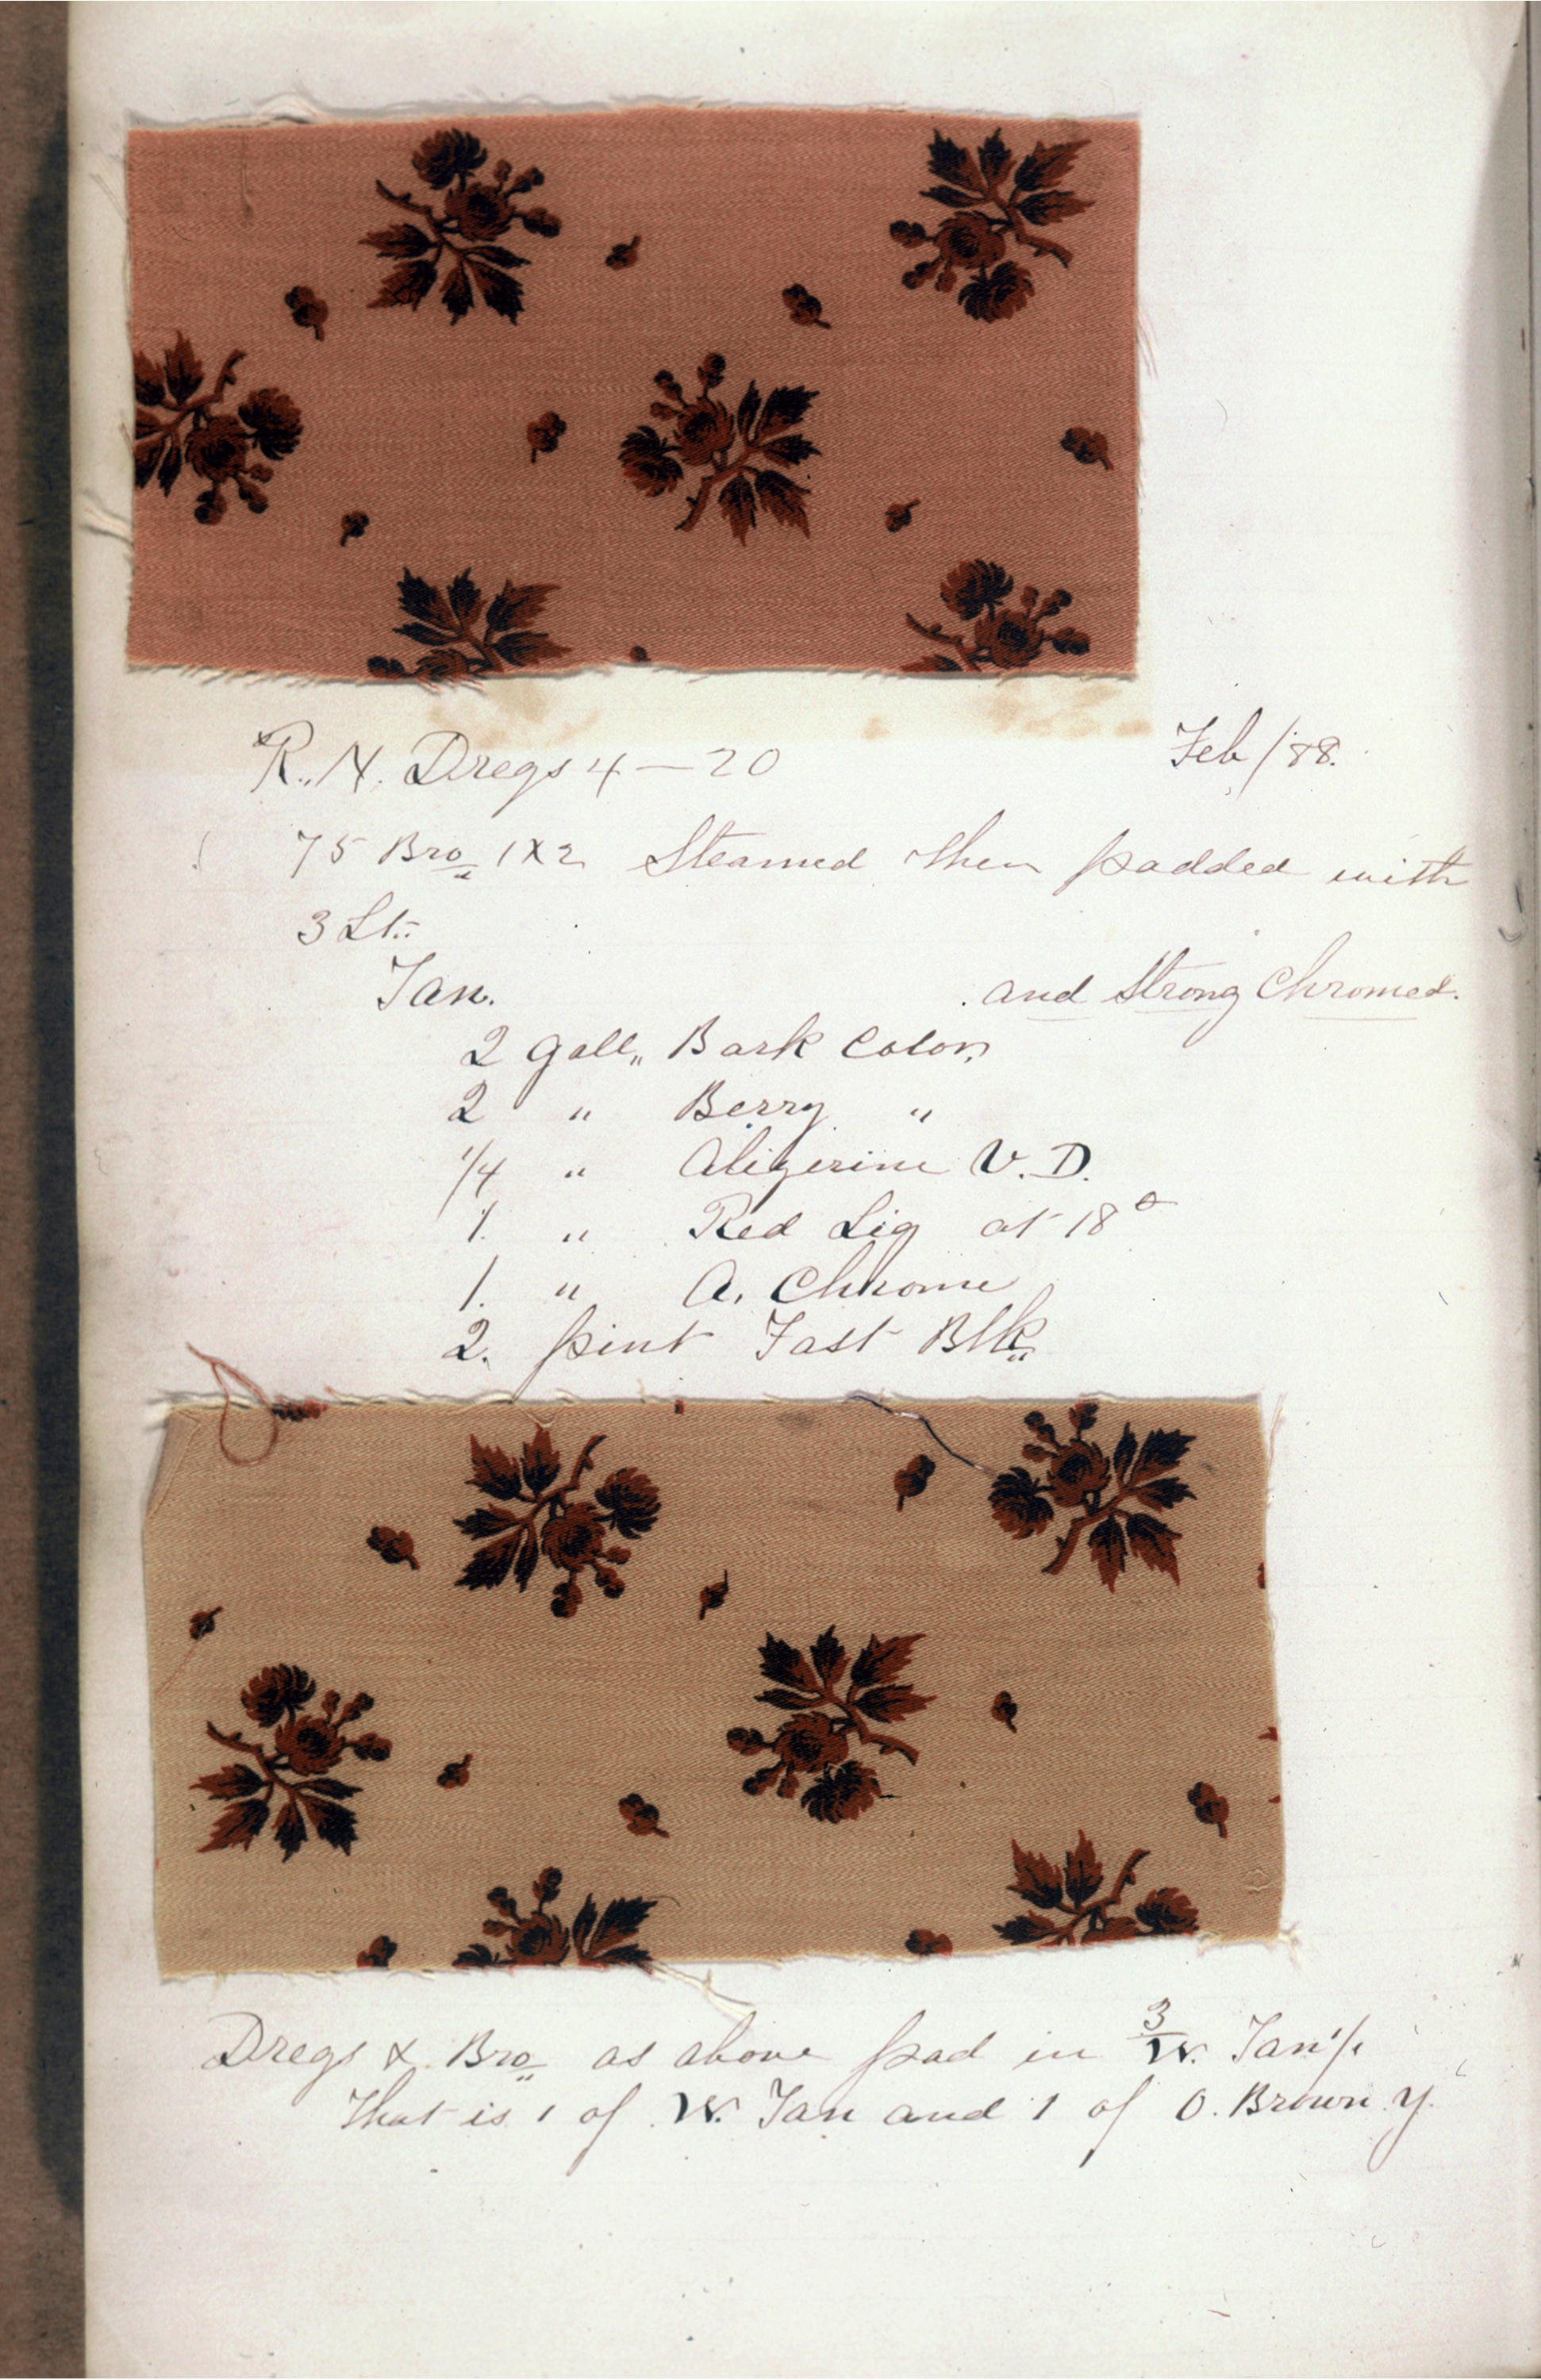 R. N. Dregs 4 — 20 Feb/88.
75 Bro 1x2 Steamed then padded with
3 Lt.
Tan. and Strong Chromed.
2 Gall,, Bark Color,
2 " Berry "
1/4 " Alizerine V. D.
1. " Red Liq at 18°
1. " A. Chrome
2. pint Fast Blk,,
Dregs & Bro,, as above pad in 3/W. Tan 1/1
That is 1 of W. Tan and 1 of O. Brown Y.